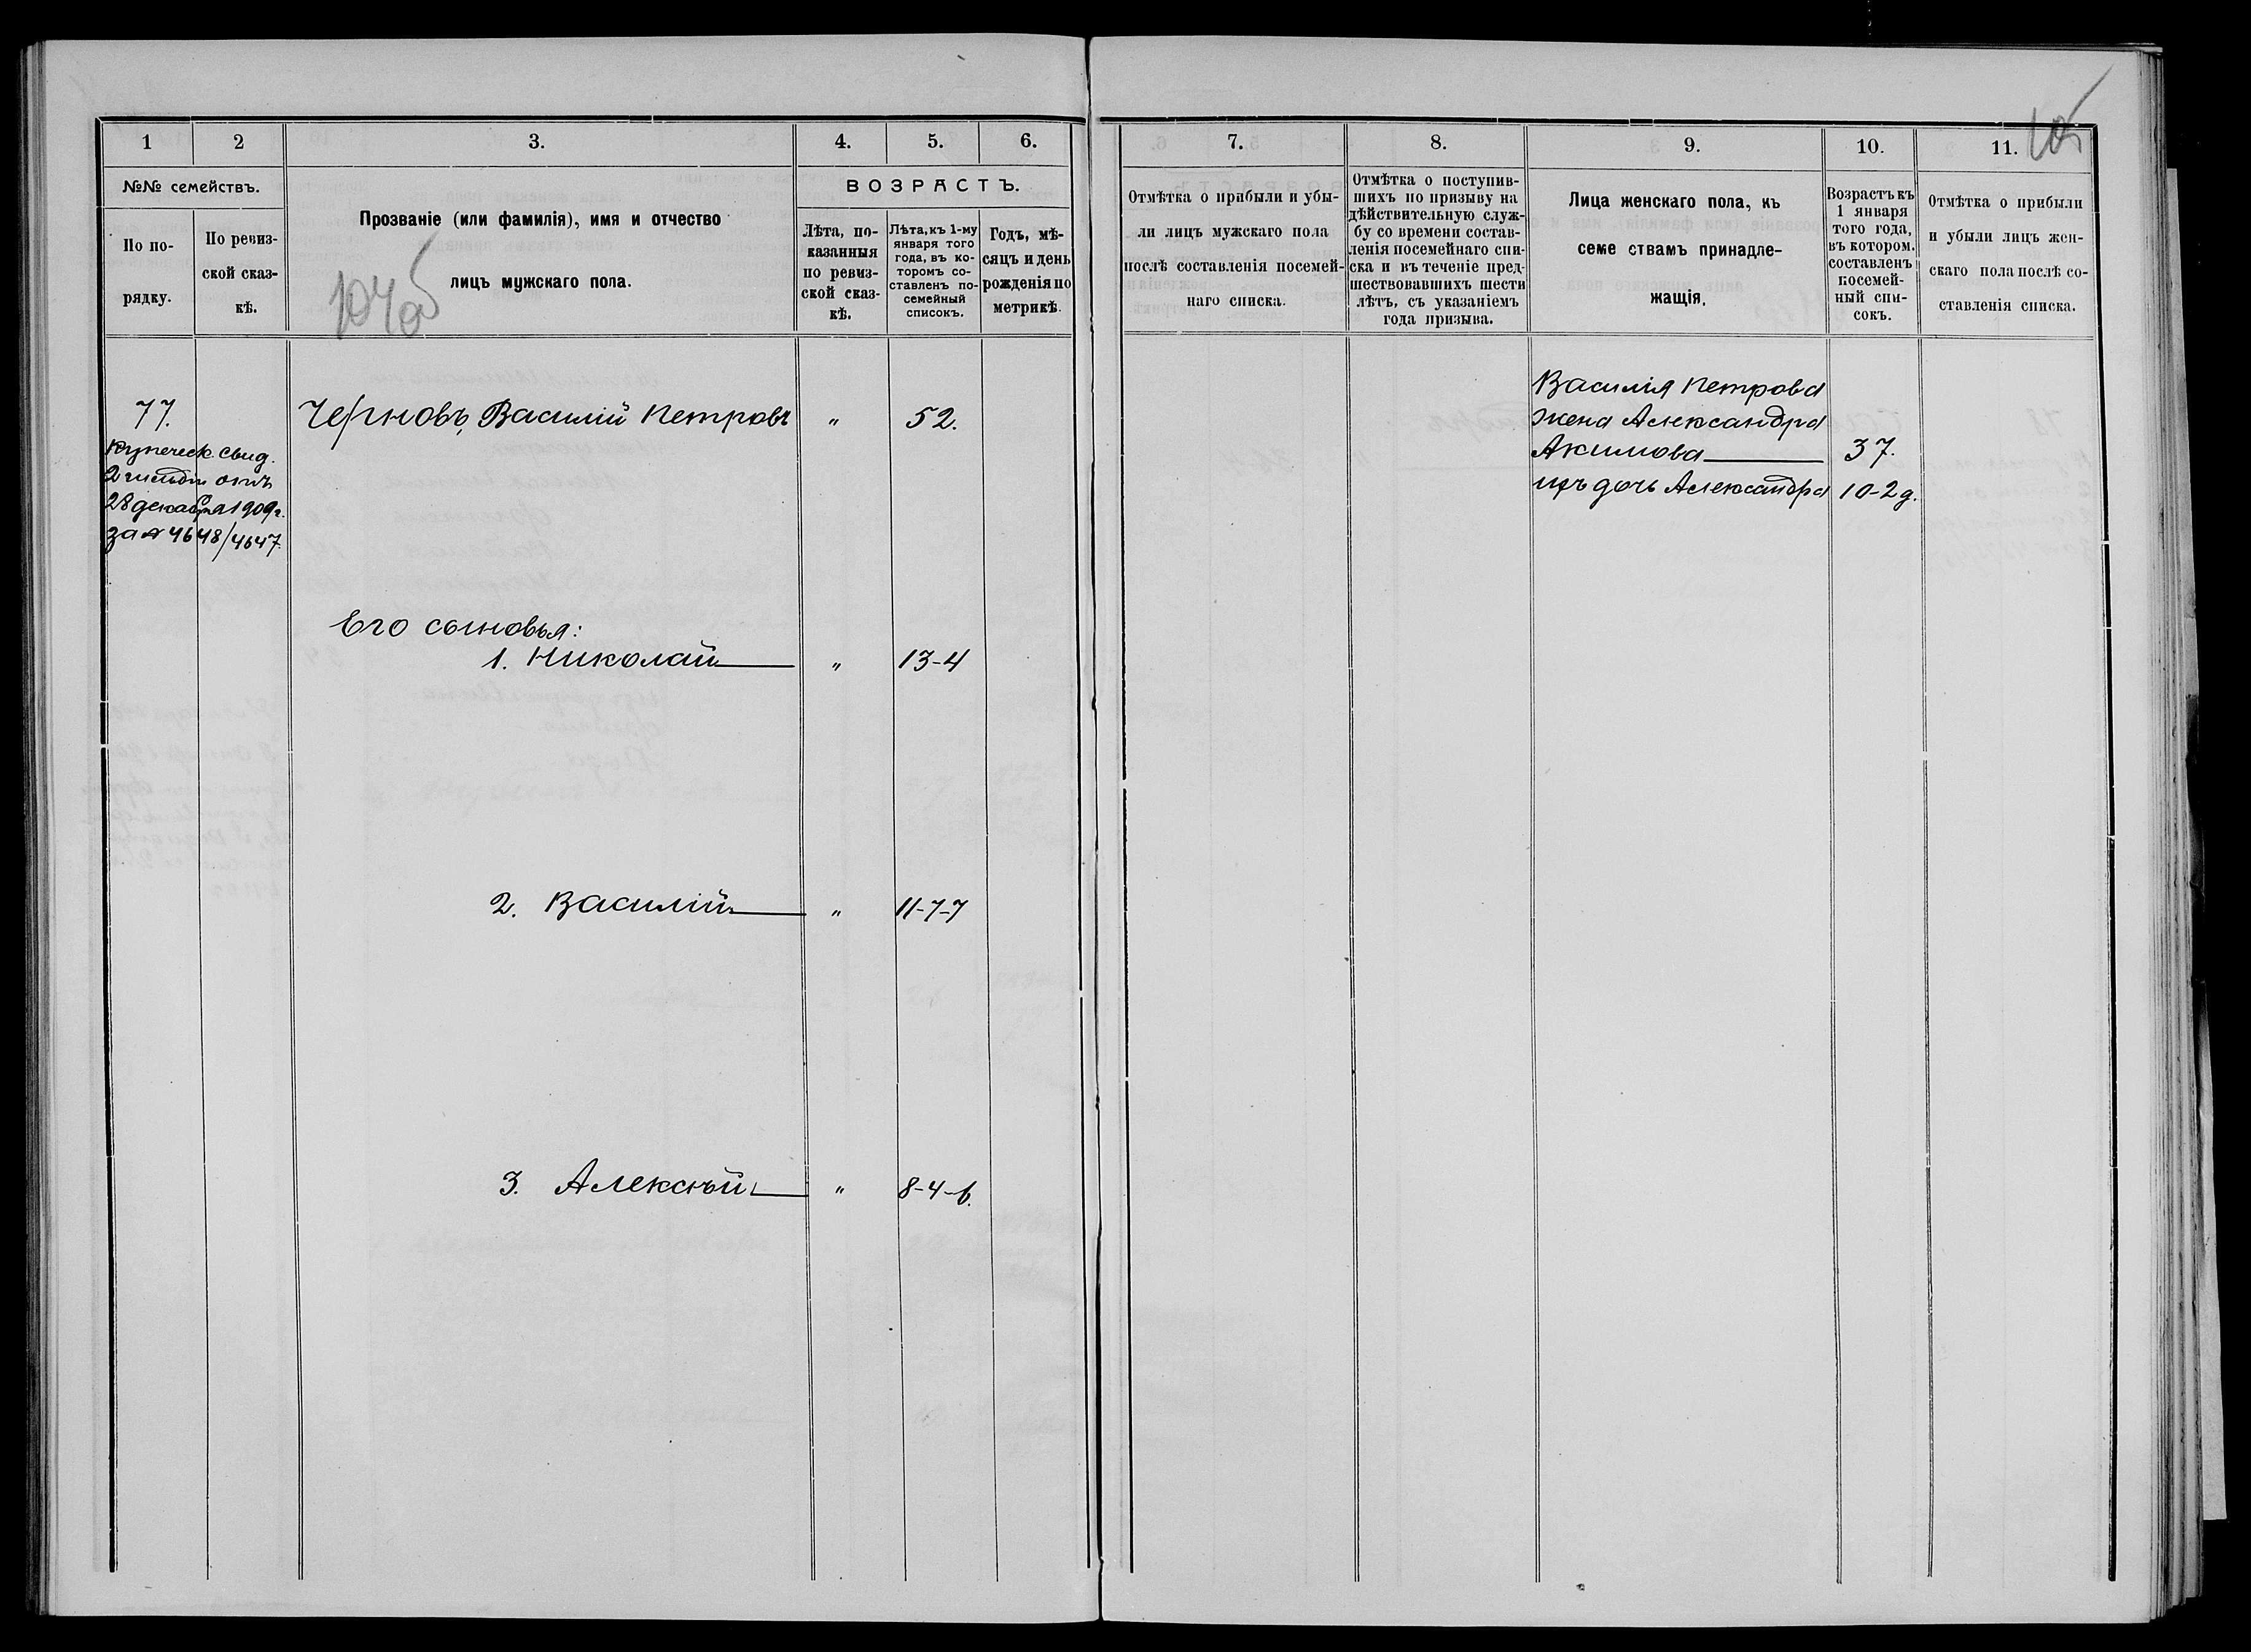 105
1
2
3.
4.
5.
6.
№№ семействъ.
По по-
рядку.
По ревиз-
ской сказ-
кѣ.
Прозваніе (или фамилія), имя и отчество
лицъ мужскаго пола.
ВОЗРАСТЪ.
Лѣта, по-
казанныя
по ревиз-
ской сказ-
кѣ.
Лѣта, къ 1-му
января того
года, въ ко-
торомъ со-
ставленъ по-
семейный
списокъ.
Годъ, мѣ-
сяцъ и день
рожденія по
метрикѣ.
77.
Купеческ. свид.
2 гильдіи отъ
28 декабря 1909 г.
за № 4648/4647.
Черновъ, Василій Петровъ " 52.
Его сыновья:
1. Николай " 13-4
2. Василій " 11-7-7
3. Алексѣй " 8-4-6.
7.
8.
9.
10.
11.
Отмѣтка о прибыли и убы-
ли лицъ мужскаго пола
послѣ составленія посемей-
наго списка.
Отмѣтка о поступив-
шихъ по призыву на
дѣйствительную служ-
бу со времени состав-
ленія посемейнаго спи-
ска и въ теченіе пред-
шествовавшихъ шести
лѣтъ, съ указаніемъ
года призыва.
Лица женскаго пола, къ
семе ствамъ принадле-
жащія.
Возрастъ къ
1 января
того года,
въ котором.
составленъ
посемей-
ный спи-
сокъ.
Отмѣтка о прибыли
и убыли лицъ жен-
скаго пола послѣ со-
ставленія списка.
Василія Петрова
жена Александра
Акимова 37.
ихъ дочь Александра 10-2 д.